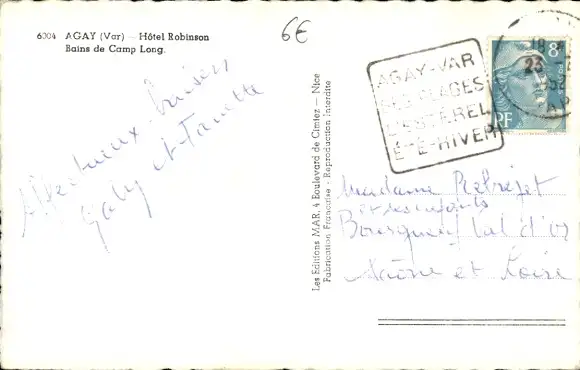 6004 AGAY (Var) — Hôtel Robinson
Bains de Camp Long.
6€
Affectueux baisers
Gaby et
AGAY-VAR
SES PLAGES
L'ESTEREL
ÉTÉ-HIVER
18
23
8F
PF
Les Editions MAR, 4 Boulevard de Cimiez — Nice
Fabrication Française - Reproduction Interdite
Madame
et ses enfants
Val d'or
Saône et Loire